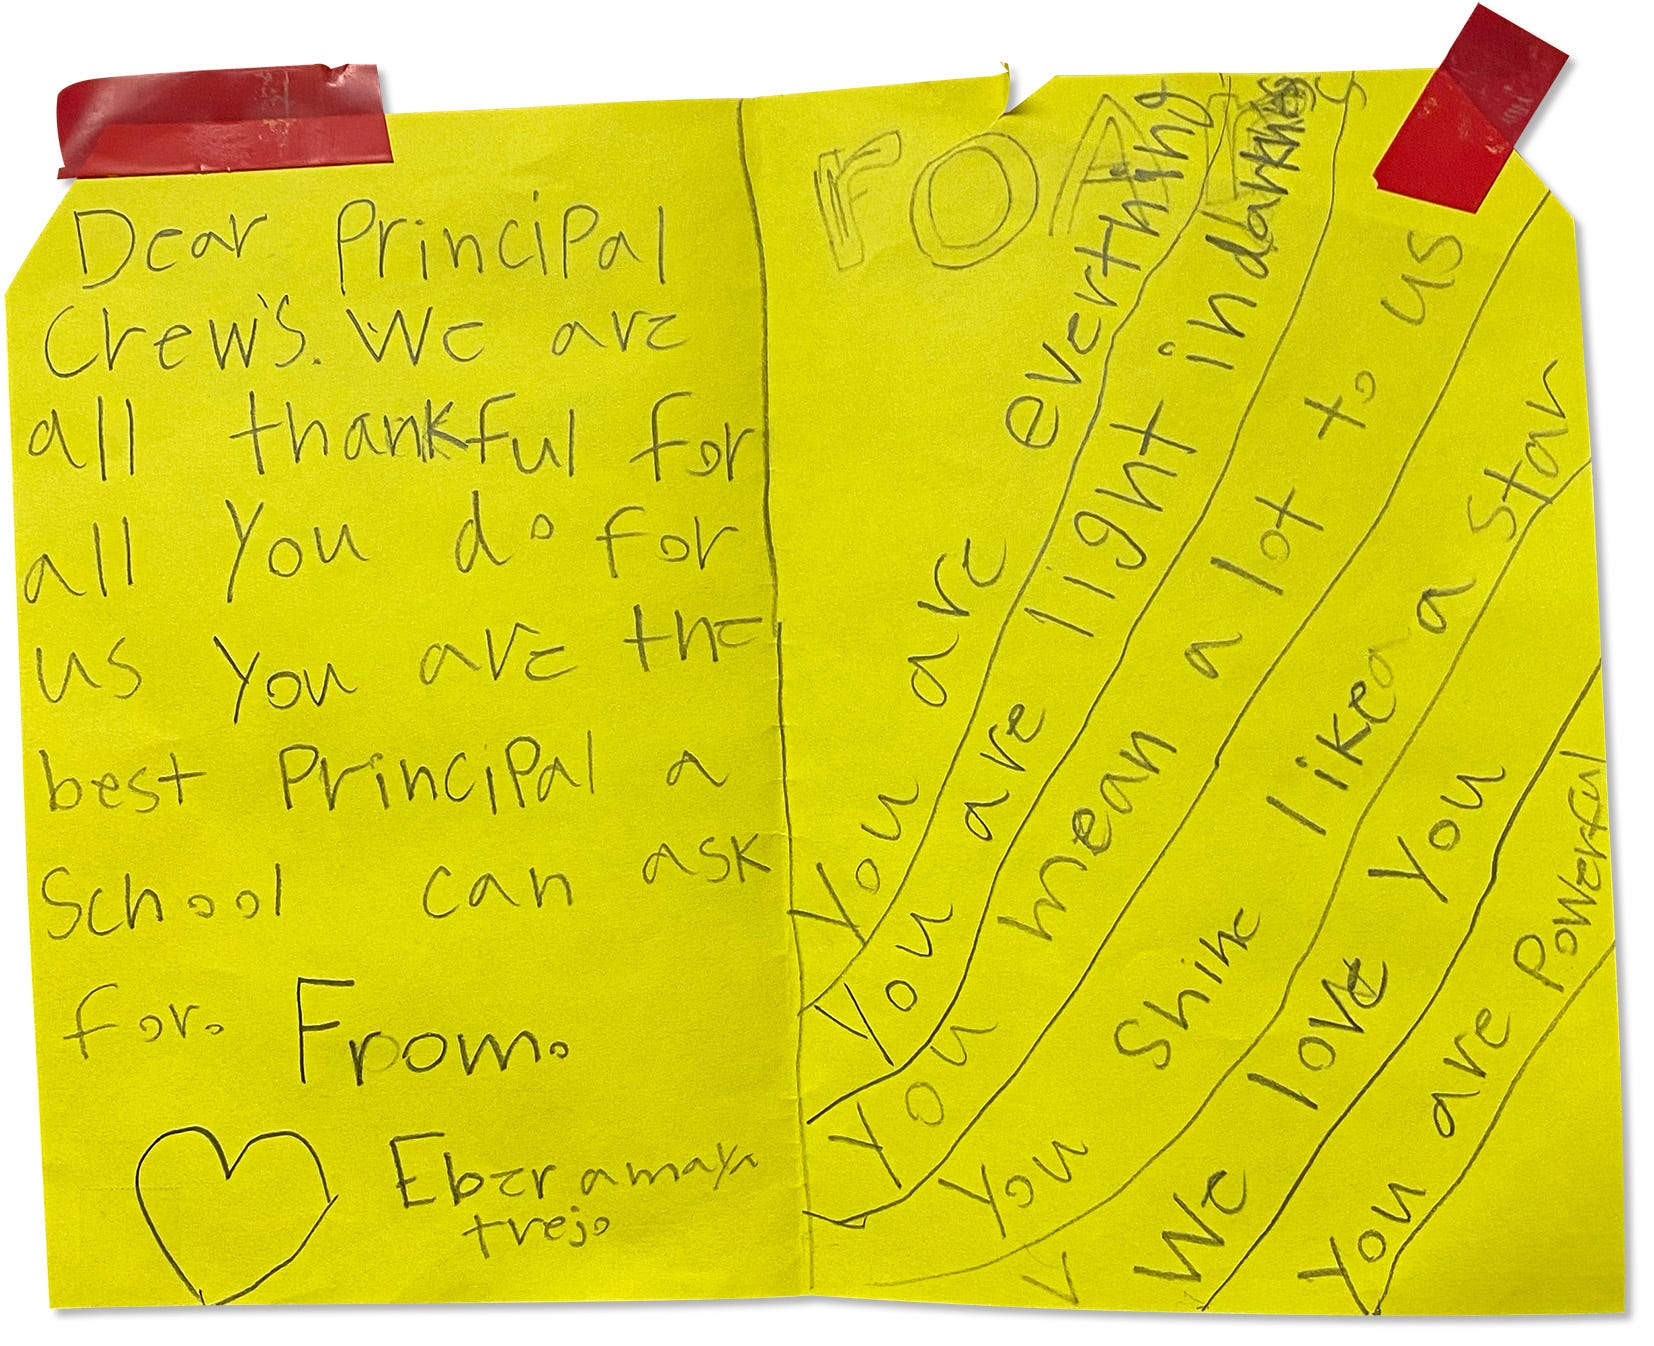 Dear Principal
Crew's. We are
all thankful for
all you do for
us you are the
best Principal a
School can ask
for. From.
Eber amaya
trejo
You are everthing
You are light in darkness
You mean a lot to us
You shine like a star
We love you
You are Powerful